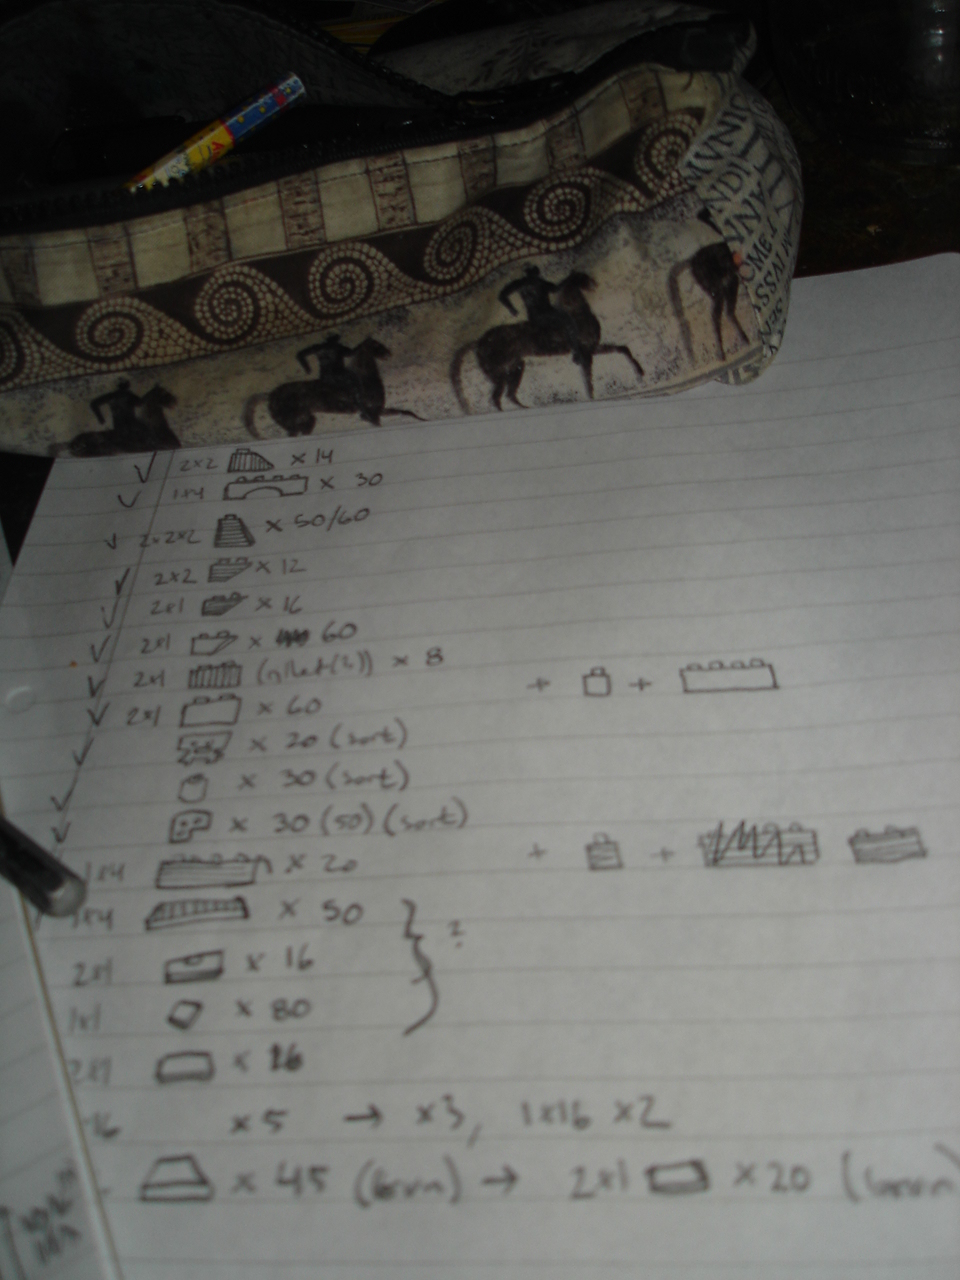 MVNIC
ANDI
ANN
OMEI
ASSALV
IIII
2x2 x 14
1x4 x 30
2x2x2 x 50/60
2x2 x 12
2x1 x 16
2x1 x 60
2x1 x 8
+ +
2x1 x 60
x 20 (sort)
x 30 (sort)
x 30 (50) (sort)
+ +
1x4 x 20
1x4 x 50
?
2x1 x 16
1x1 x 80
2x1 x 16
16 x 5 → x3, 1x16 x2
x 45 → 2x1 x 20